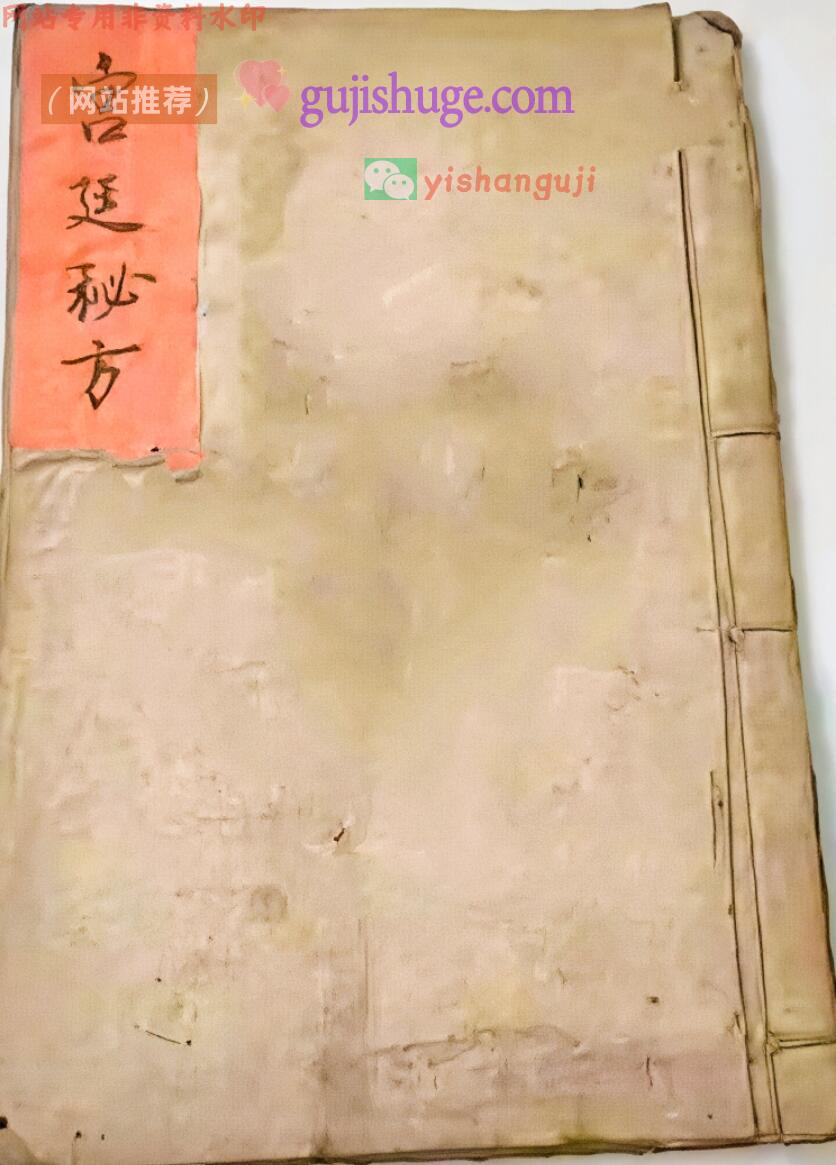 网站专用非资料水印
（网站推荐）
gujishuge.com
yishanguji
宫廷秘方